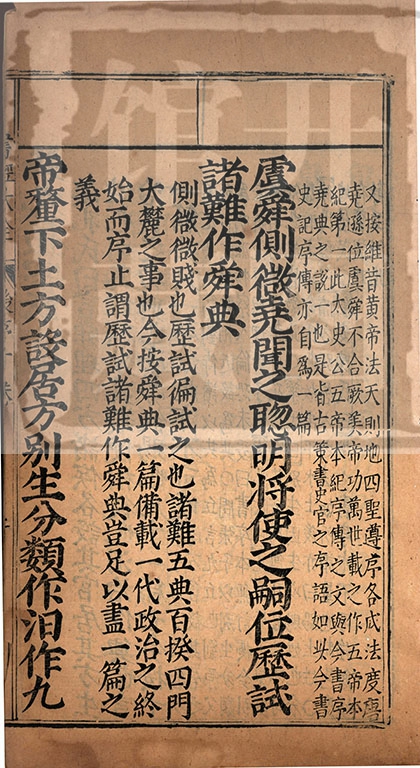 又按維昔黄帝法天則地四聖遵序各成法度唐
堯孫位虞舜不台厥美帝功萬世載之作五帝本
紀第一此太史公五帝本紀序傳之文與今書序
堯典之談一也是皆古策書史官之序語如此今書
史記序傳亦自為一篇
虞舜側微堯聞之聰明將使之嗣位歷試
諸難作舜典
側微微賤也歷試徧試之也諸難五典百揆四門
大麓之事也今按舜典一篇備載一代政治之終
始而序止謂歷試諸難作舜典豈足以盡一篇之
義
帝釐下土方設居方别生分類作汩作九